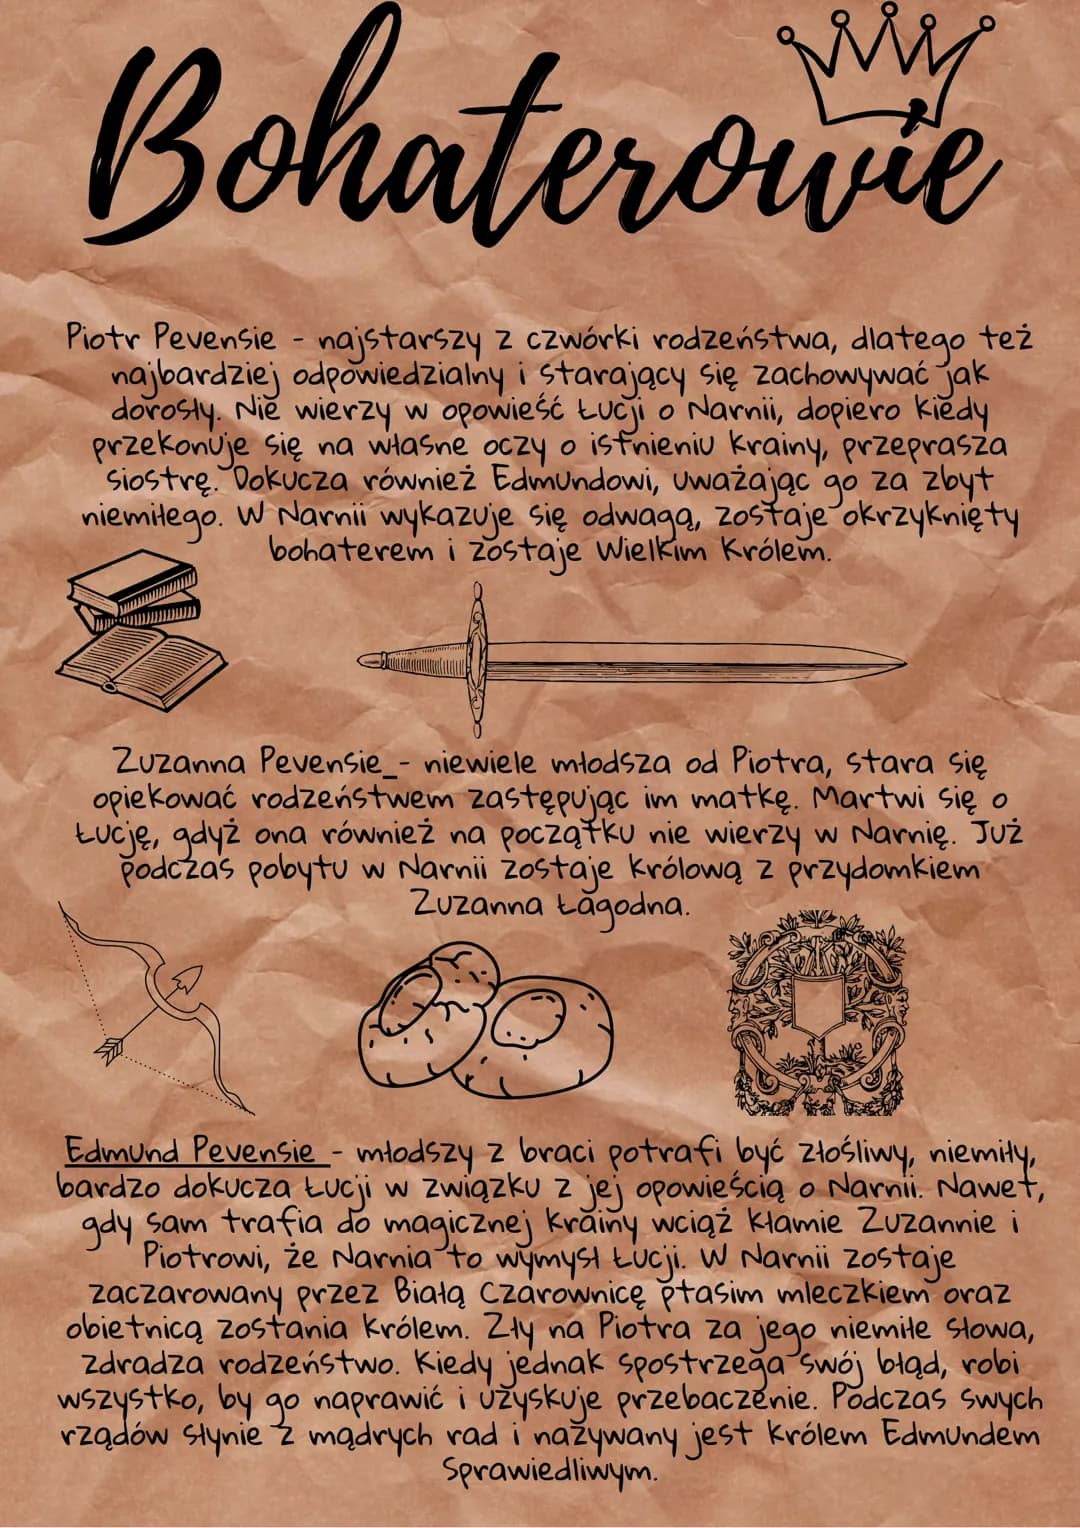 Bohaterowie
Piotr Pevensie - najstarszy z czwórki rodzeństwa, dlatego też
najbardziej odpowiedzialny i starający się zachowywać jak
dorosły. Nie wierzy w opowieść Łucji o Narnii, dopiero kiedy
przekonuje się na własne oczy o istnieniu krainy, przeprasza
siostrę. Dokucza również Edmundowi, uważając go za zbyt
niemiłego. W Narnii wykazuje się odwagą, zostaje okrzyknięty
bohaterem i zostaje Wielkim Królem.
Zuzanna Pevensie - niewiele młodsza od Piotra, stara się
opiekować rodzeństwem zastępując im matkę. Martwi się o
Łucję, gdyż ona również na początku nie wierzy w Narnię. Już
podczas pobytu w Narnii zostaje królową z przydomkiem
Zuzanna Łagodna.
Edmund Pevensie - młodszy z braci potrafi być złośliwy, niemiły,
bardzo dokucza Łucji w związku z jej opowieścią o Narnii. Nawet,
gdy sam trafia do magicznej krainy wciąż kłamie Zuzannie i
Piotrowi, że Narnia to wymysł Łucji. W Narnii zostaje
zaczarowany przez Białą Czarownicę ptasim mleczkiem oraz
obietnicą zostania królem. Zły na Piotra za jego niemiłe słowa,
zdradza rodzeństwo. Kiedy jednak spostrzega swój błąd, robi
wszystko, by go naprawić i uzyskuje przebaczenie. Podczas swych
rządów słynie z mądrych rad i nazywany jest Królem Edmundem
Sprawiedliwym.